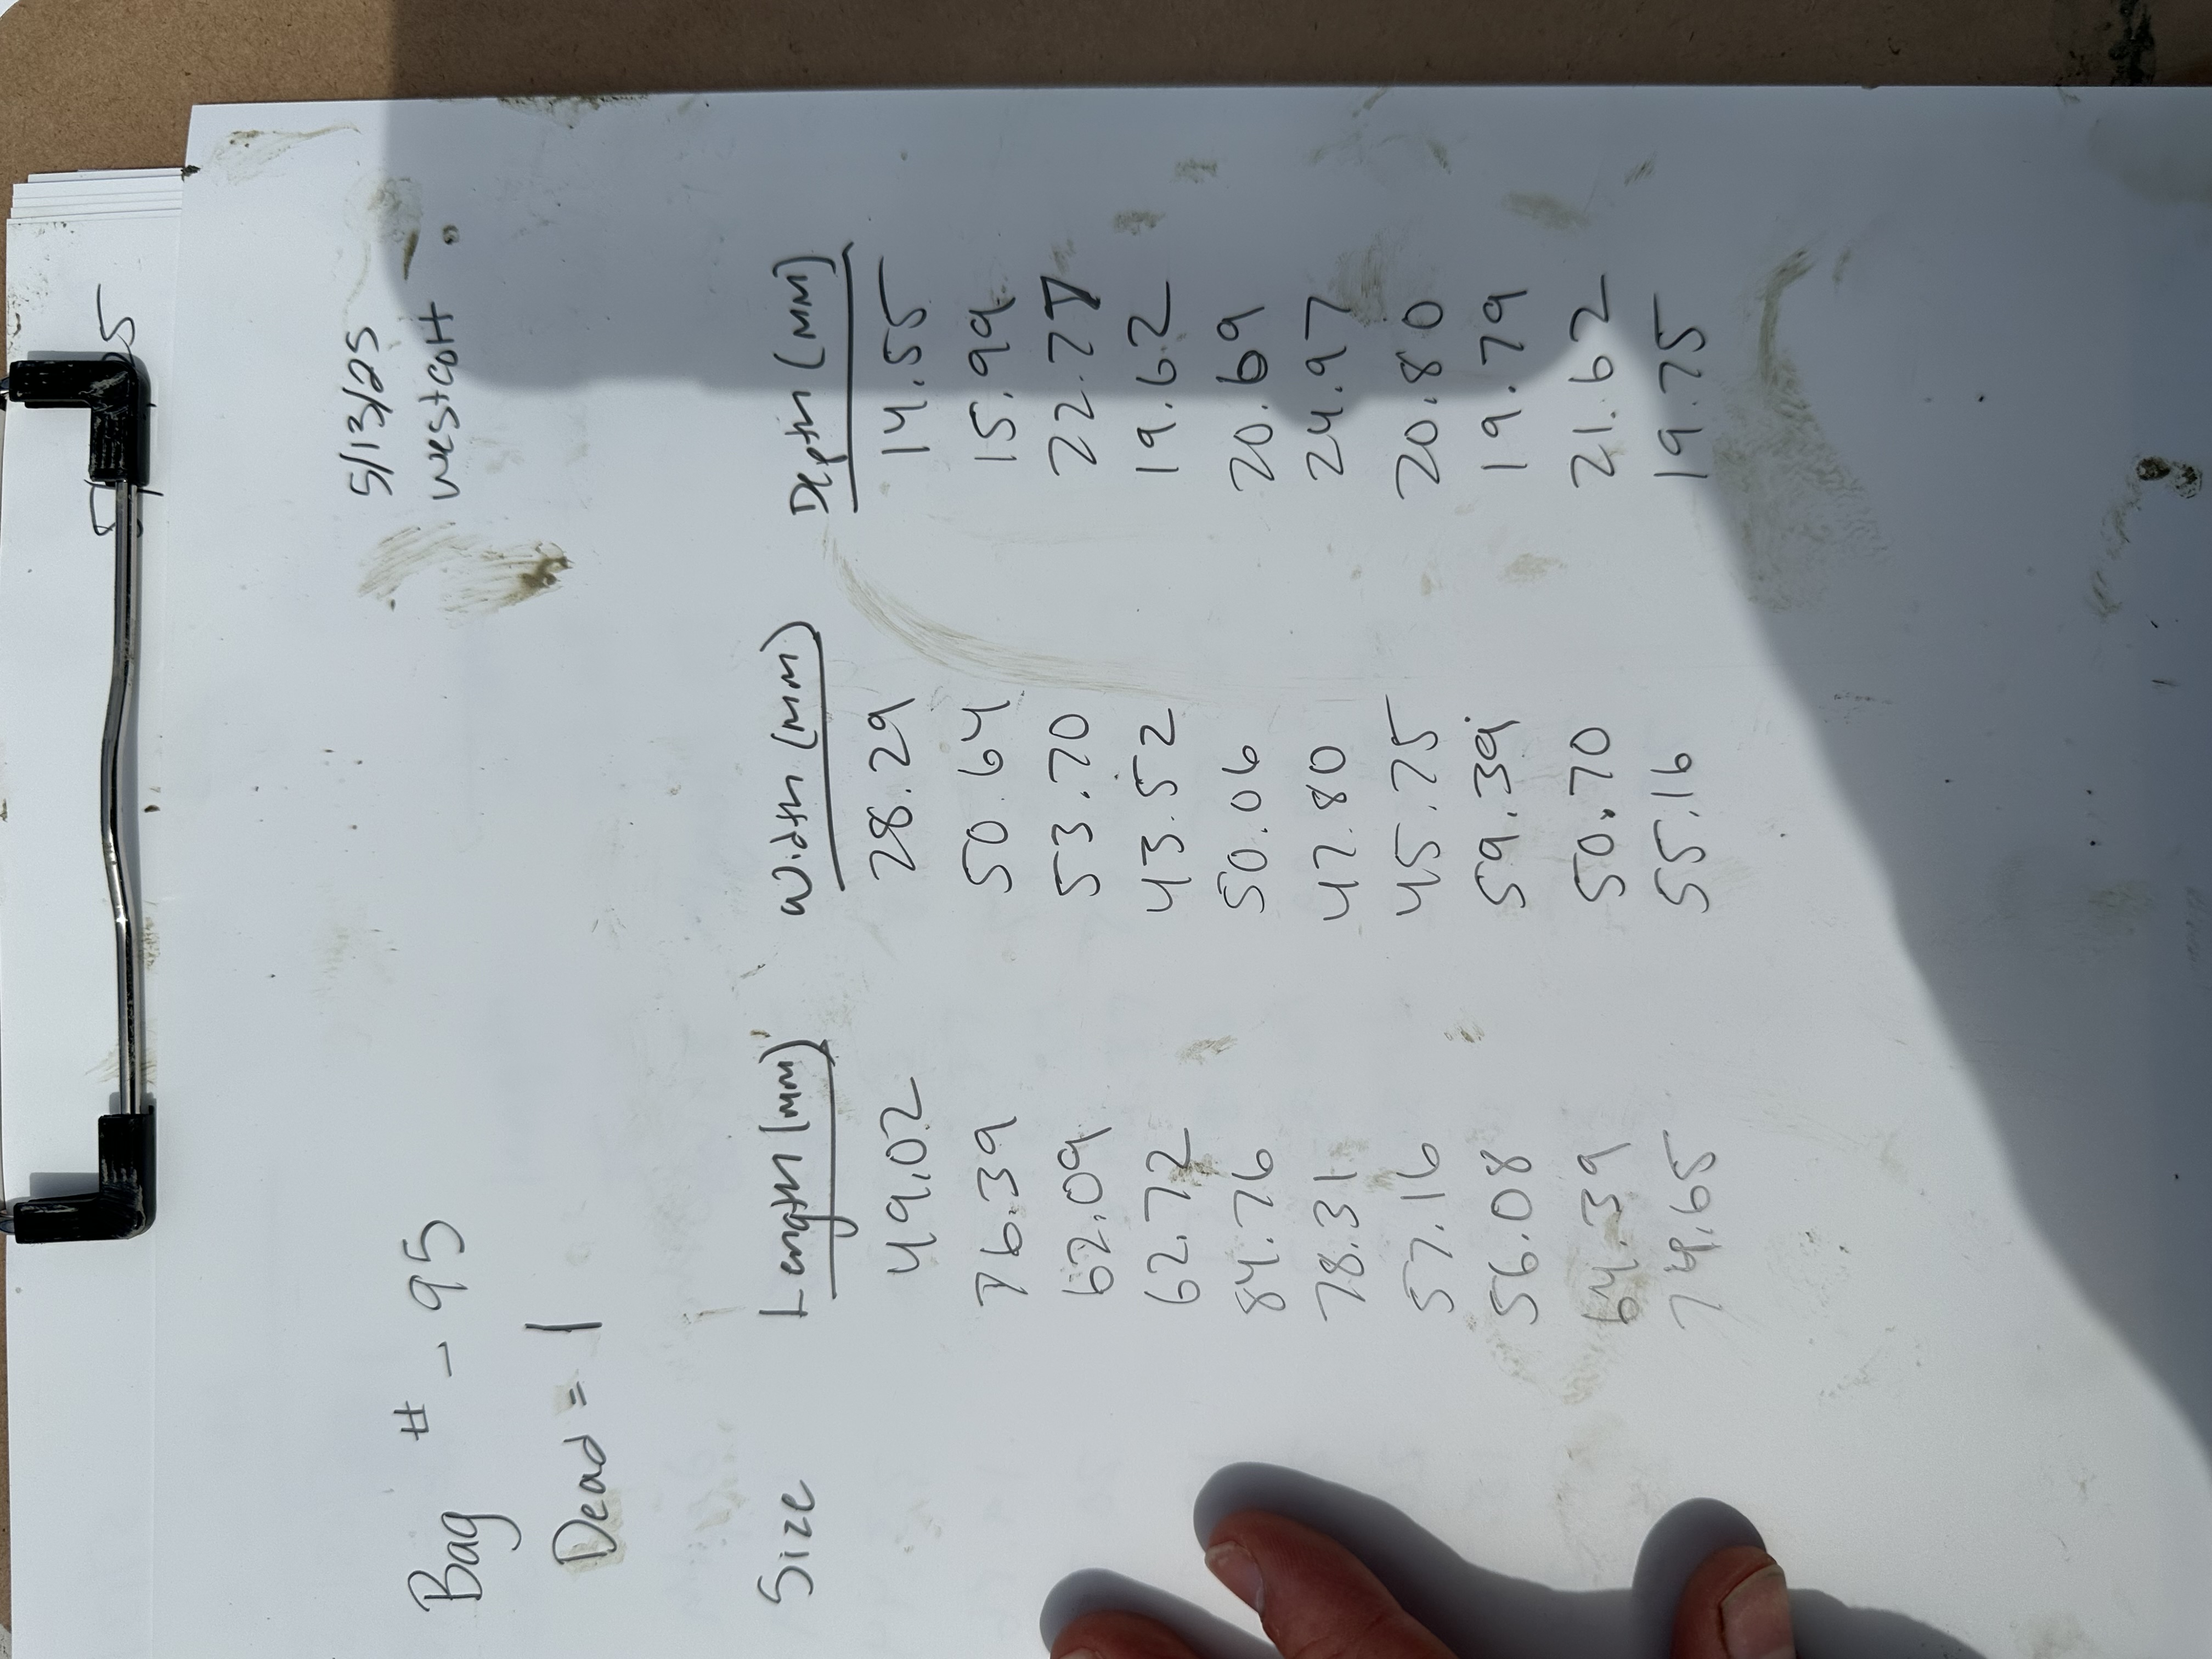 5/13/25
Westcott
Bag # - 95
Dead = 1
Size Length (mm) Width (mm) Depth (mm)
49.02 28.29 14.55
76.39 50.64 15.99
62.09 53.70 22.77
62.72 43.52 19.62
84.76 50.06 20.69
78.31 47.80 24.97
57.16 45.75 20.80
56.08 59.39 19.79
64.39 50.70 21.62
74.65 55.16 19.75